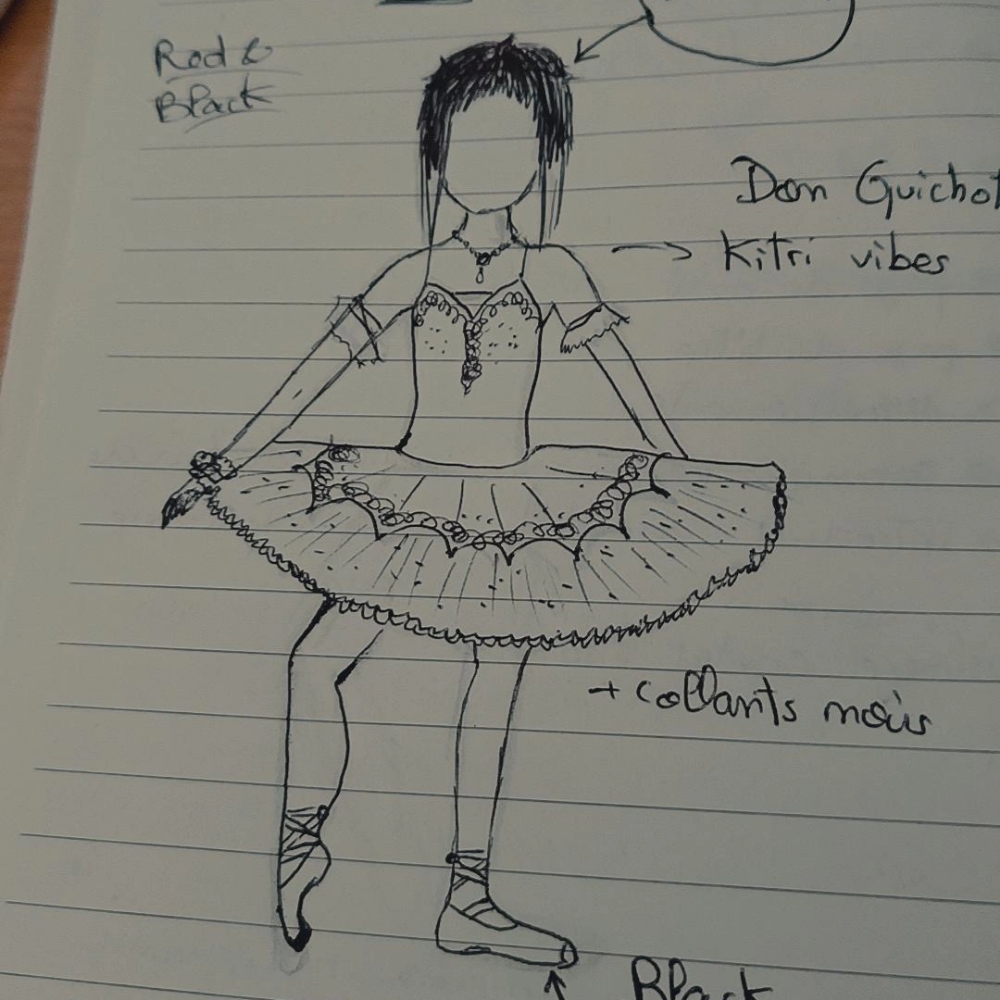 Red &
Black
Don Quichot
→ Kitri vibes
+ collants noirs
Black